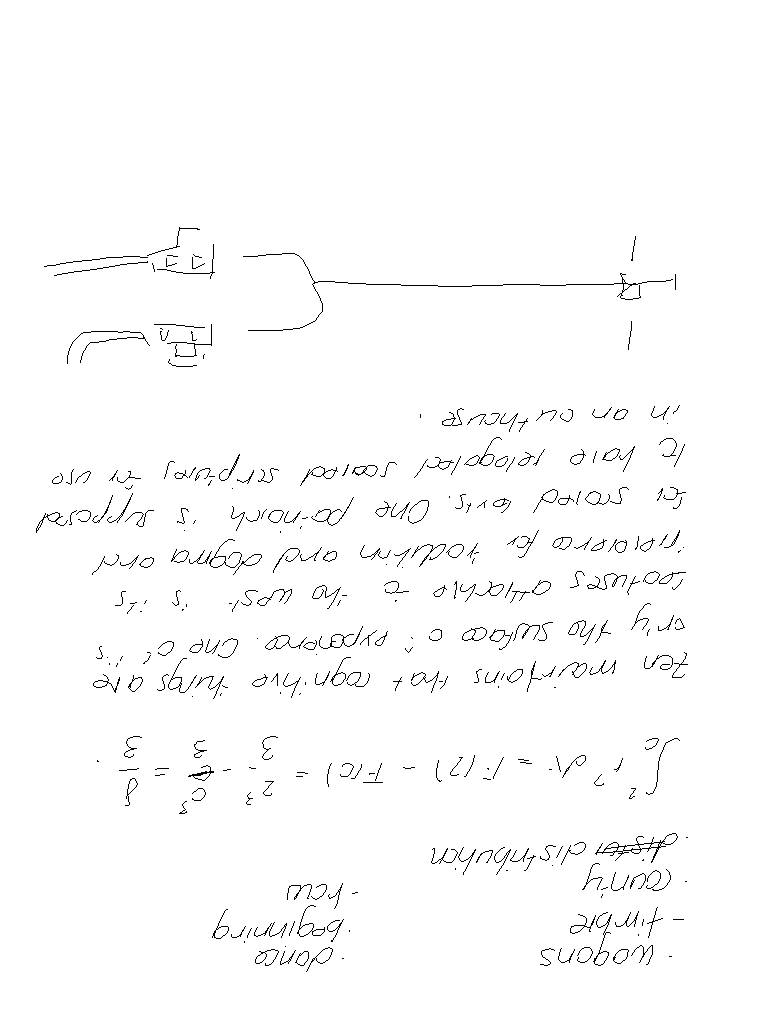 · wagons
- timbre
· county
· distribution
· dance
· beginning
- how
∫₀² r² dr = F(2) - F(0) = 2³/3 - 0³/3 = 8/3 .
Zen maintains that cognitive things are
only the surface of experience. One of its
features attractive to the west is its
irreverence for tradition and dogma and
for sacred texts. One patriarch is supposed
to have relegated sacred scriptures for use
in an outhouse .